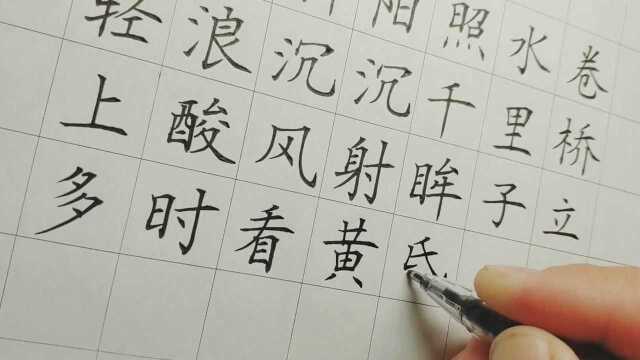 阳照水卷
轻浪沉沉千里桥
上酸风射眸子立
多时看黄氏